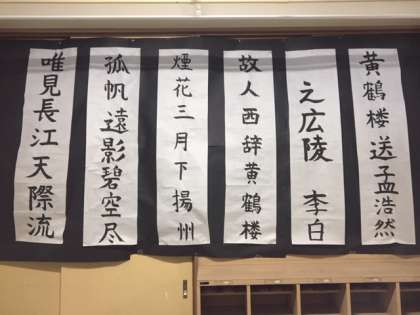 黄鶴楼送孟浩然
之広陵 李白
故人西辞黄鶴楼
煙花三月下揚州
孤帆遠影碧空尽
唯見長江天際流